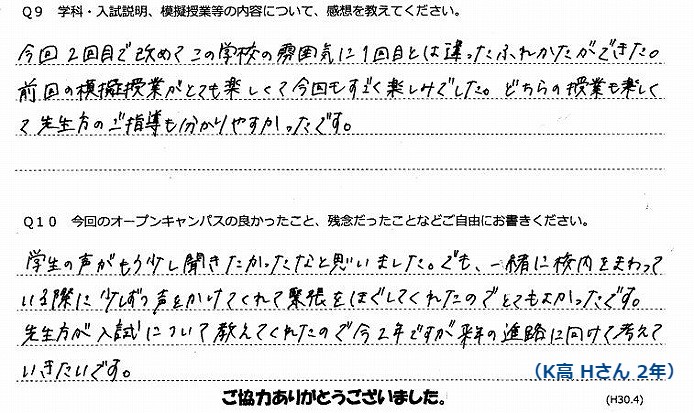 Q9 学科・入試説明、模擬授業等の内容について、感想を教えてください。
今回2回目で改めてこの学校の雰囲気に1回目とは違ったふれかたができた。
前回の模擬授業がとても楽しくて今回もすごく楽しみでした。どちらの授業も楽しく
て先生方のご指導も分かりやすかったです。
Q10 今回のオープンキャンパスの良かったこと、残念だったことなどご自由にお書きください。
学生の声がもう少し聞きたかったなと思いました。でも、一緒に校内をまわって
いる際に少しずつ声をかけてくれて緊張をほぐしてくれたのでとてもよかったです。
先生方が入試について教えてくれたので今2年ですが来年の進路に向けて考えて
いきたいです。
(K高 Hさん 2年)
ご協力ありがとうございました。
(H30.4)